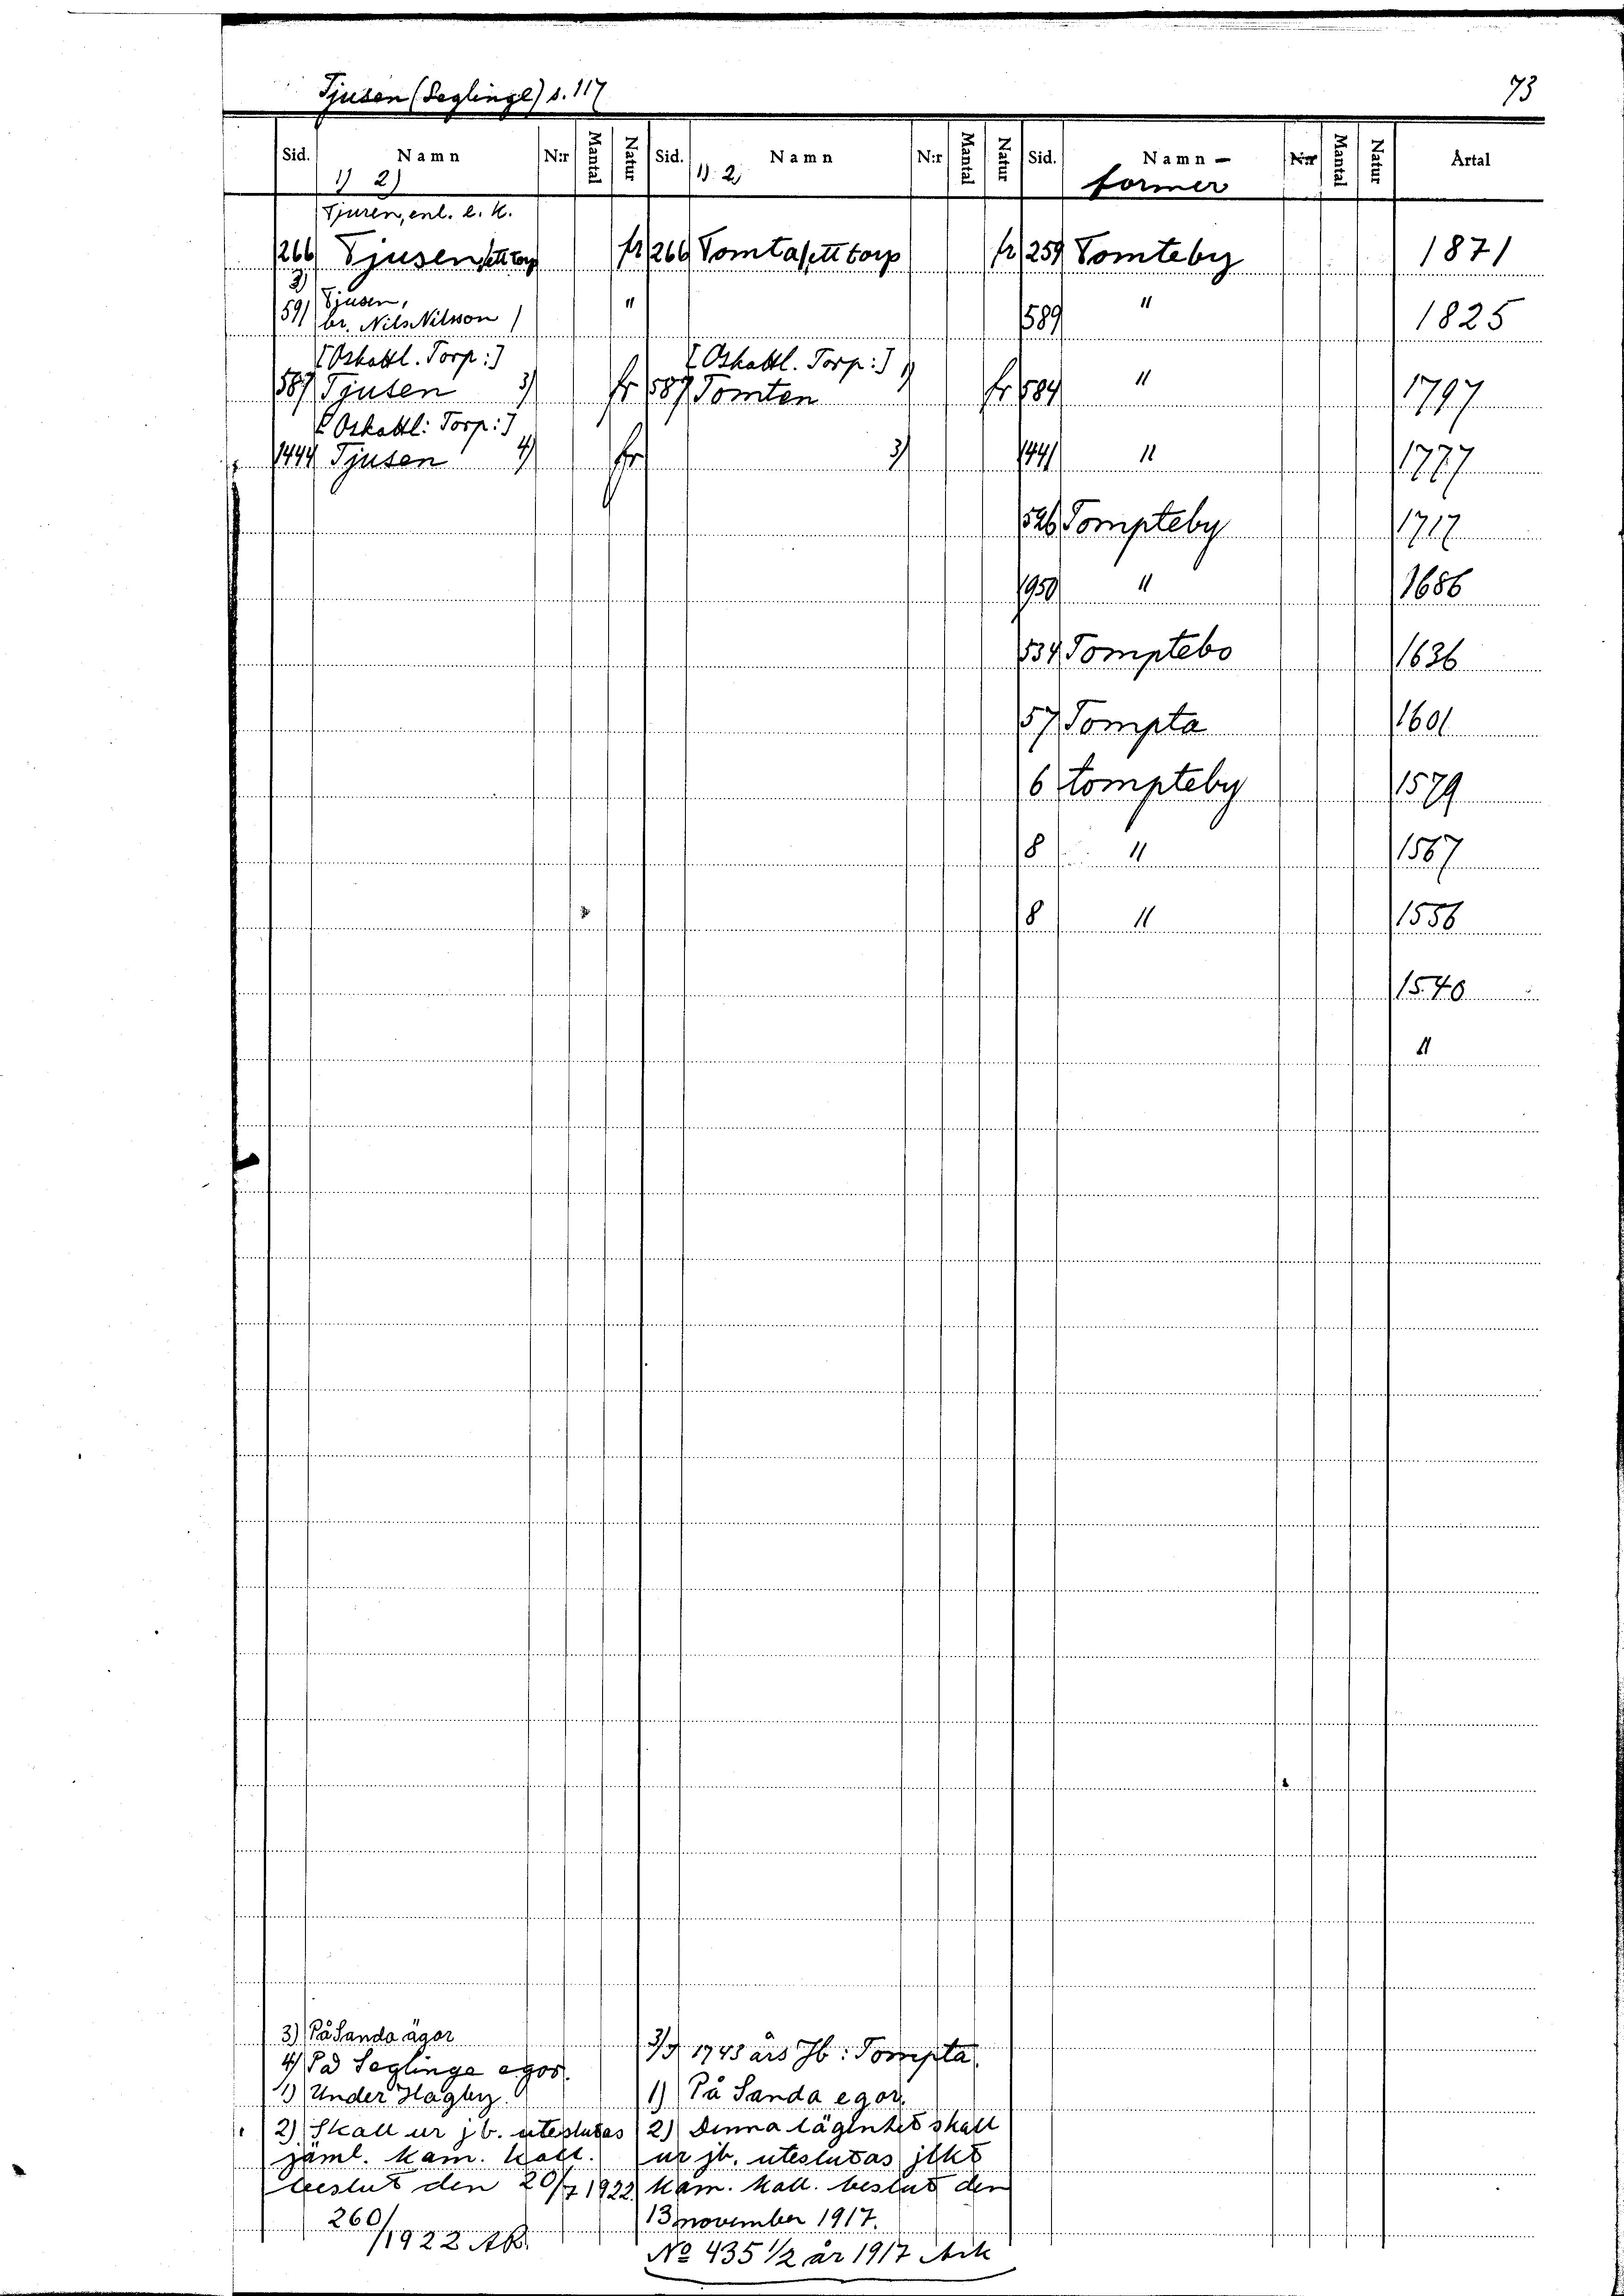 Tjusen (Seglinge) s. 117 73
Sid. Namn N:r Mantal Natur Sid. Namn N:r Mantal Natur Sid. Namn- N:r Mantal Natur Årtal
1) 2) 1) 2) former
Tjuren, enl. e. k.
266 Tjusen, ett torp fr 266 Tomta, ett torp fr 259 Tomteby 1871
3)
591 Tjusen, " 589 " 1825
br. Nils Nilsson
[Oskattl. Torp:] [Oskattl. Torp:]
587 Tjusen 3) fr 587 Tomten 1) fr 584 " 1797
[Oskattl: Torp:]
1444 Tjusen 4) fr 3) 1441 " 1777
526 Tompteby 1717
1950 " 1686
534 Tomptebo 1636
57 Tompta 1601
6 tompteby 1579
8 " 1567
8 " 1556
1540
"
3) På Sanda ägor
4) På Seglinge egor.
1) Under Hagby.
2) Skall ur jb. uteslutas
jäml. kam. koll.
beslut den 20/7 1922
260/1922 AK.
3) I 1743 års Jb: Tompta.
1) På Sanda egor.
2) Denna lägenhet skall
ur jb. uteslutas jlkt
kam. koll. beslut den
13 november 1917.
No 435 1/2 år 1917 Ark